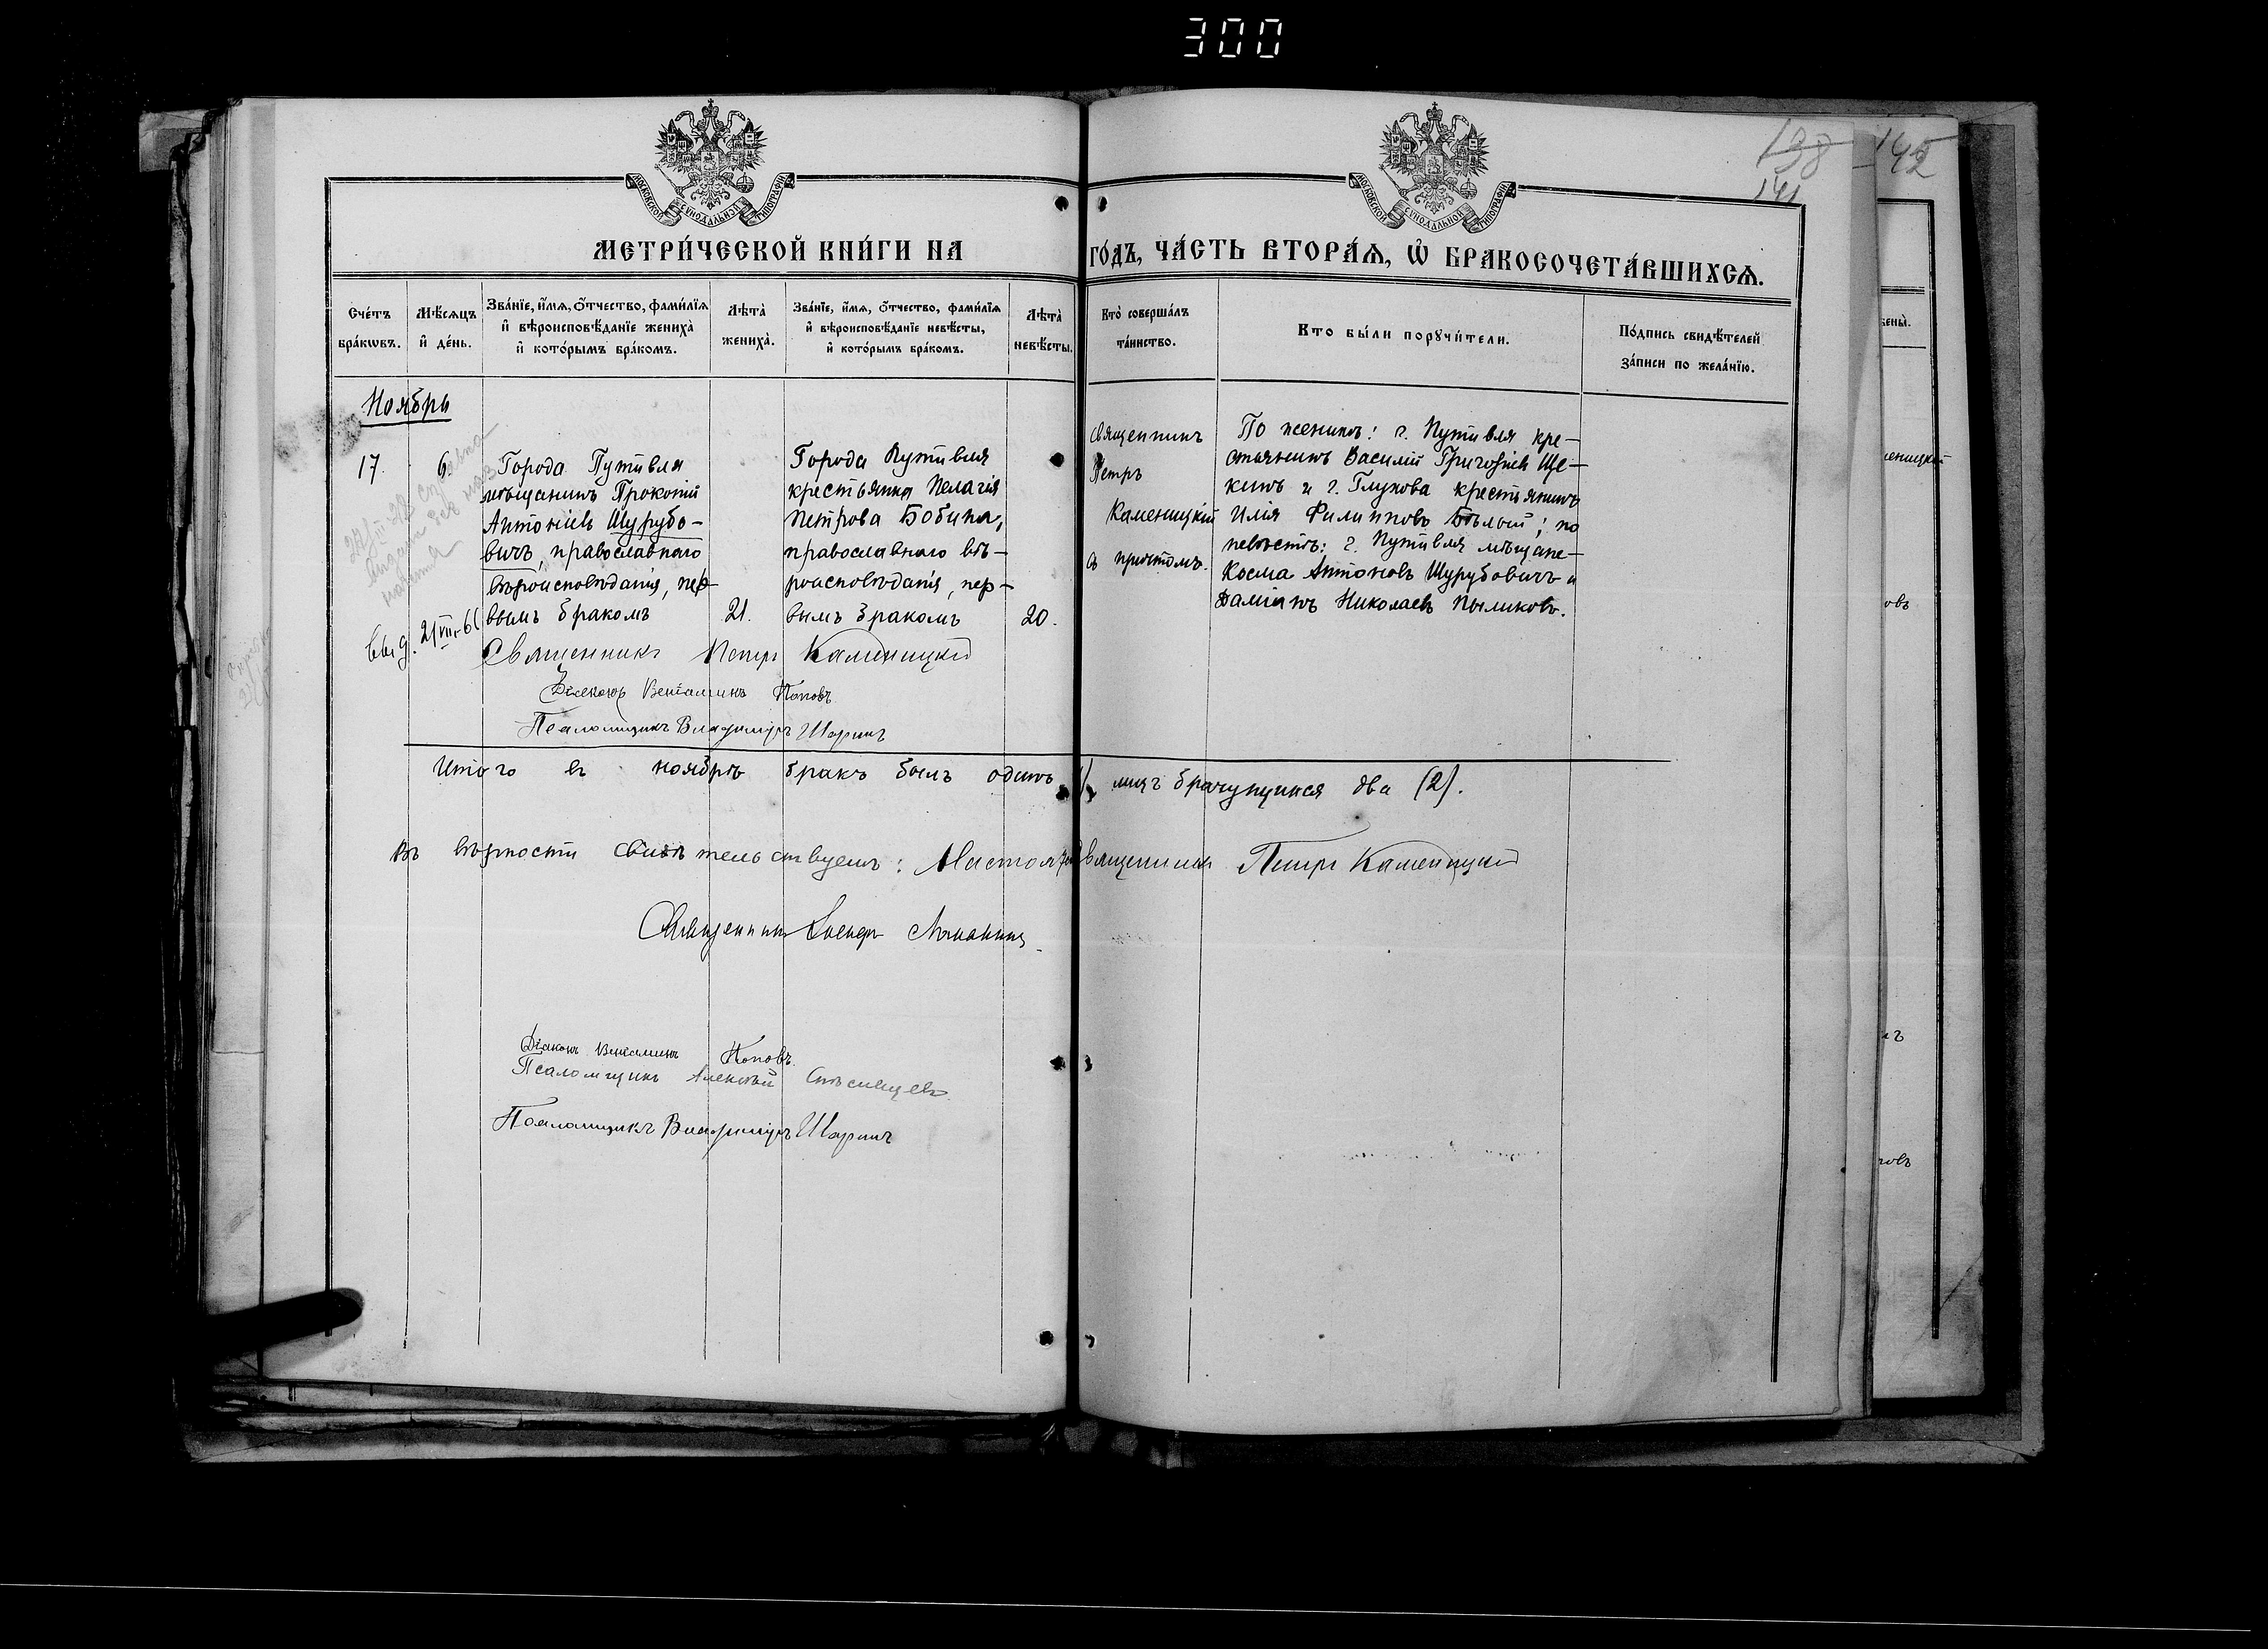 300
138
141
142
МОСКОВСКОЙ СУНОДАЛЬНОЙ ТИПОГРАФІИ
МОСКОВСКОЙ СУНОДАЛЬНОЙ ТИПОГРАФІИ
МЕТРИ́ЧЕСКОЙ КНИ́ГИ НА
ГО́ДЪ, ЧА́СТЬ ВТОРА́Ѧ, Ѽ БРАКОСОЧЕТА́ВШИХСѦ.
Сче́тъ бра́кѡвъ.
Мѣ́сѧцъ и҆ де́нь.
Зва́нїе, и҆́мѧ, ѻ҆́тчество, фами́лїѧ
и҆ вѣроисповѣ́данїе жениха̀
и҆ кото́рымъ бра́комъ.
Лѣта̀ жениха̀.
Зва́нїе, и҆́мѧ, ѻ҆́тчество, фами́лїѧ
и҆ вѣроисповѣ́данїе невѣ́сты,
и҆ кото́рымъ бра́комъ.
Лѣта̀ невѣ́сты.
Кто̀ соверша́лъ та́инство.
Кто бы́ли порꙋчи́тели.
По́дпись свидѣ́телей
за́писи по жела́нїю.
Ноябрь
17.
6.
Города Путивля
мѣщанинъ Прокопій
Антоніевъ Шурубо-
вичъ, православнаго
вѣроисповѣданія, пер-
вымъ бракомъ
21.
Города Путивля
крестьянка Пелагія
Петрова Бобина,
православнаго вѣ-
роисповѣданія, пер-
вымъ бракомъ
20.
Священникъ
Петръ
Каменицкій
съ причтомъ.
По женихѣ: г. Путивля кре-
стьянинъ Василій Григорьевъ Ще-
кинъ и г. Глухова крестьянинъ
Илія Филипповъ Бѣлый; по
невѣстѣ: г. Путивля мѣщане-
Косма Антоновъ Шурубовичъ и
Даміанъ Николаевъ Пыликовъ.
Выд. 21/VII-66
Священникъ Петръ Каменицкій
Діаконъ Веніаминъ Поповъ
Псаломщикъ Владиміръ Шаринъ
Итого въ ноябрѣ бракъ былъ одинъ, лицъ брачущихся два (2).
Въ вѣрности свидѣтельствуемъ: Настоят. Священникъ Петръ Каменицкій
Священникъ
Діаконъ Веніаминъ Поповъ.
Псаломщикъ Алексѣй
Псаломщикъ Владиміръ Шаринъ